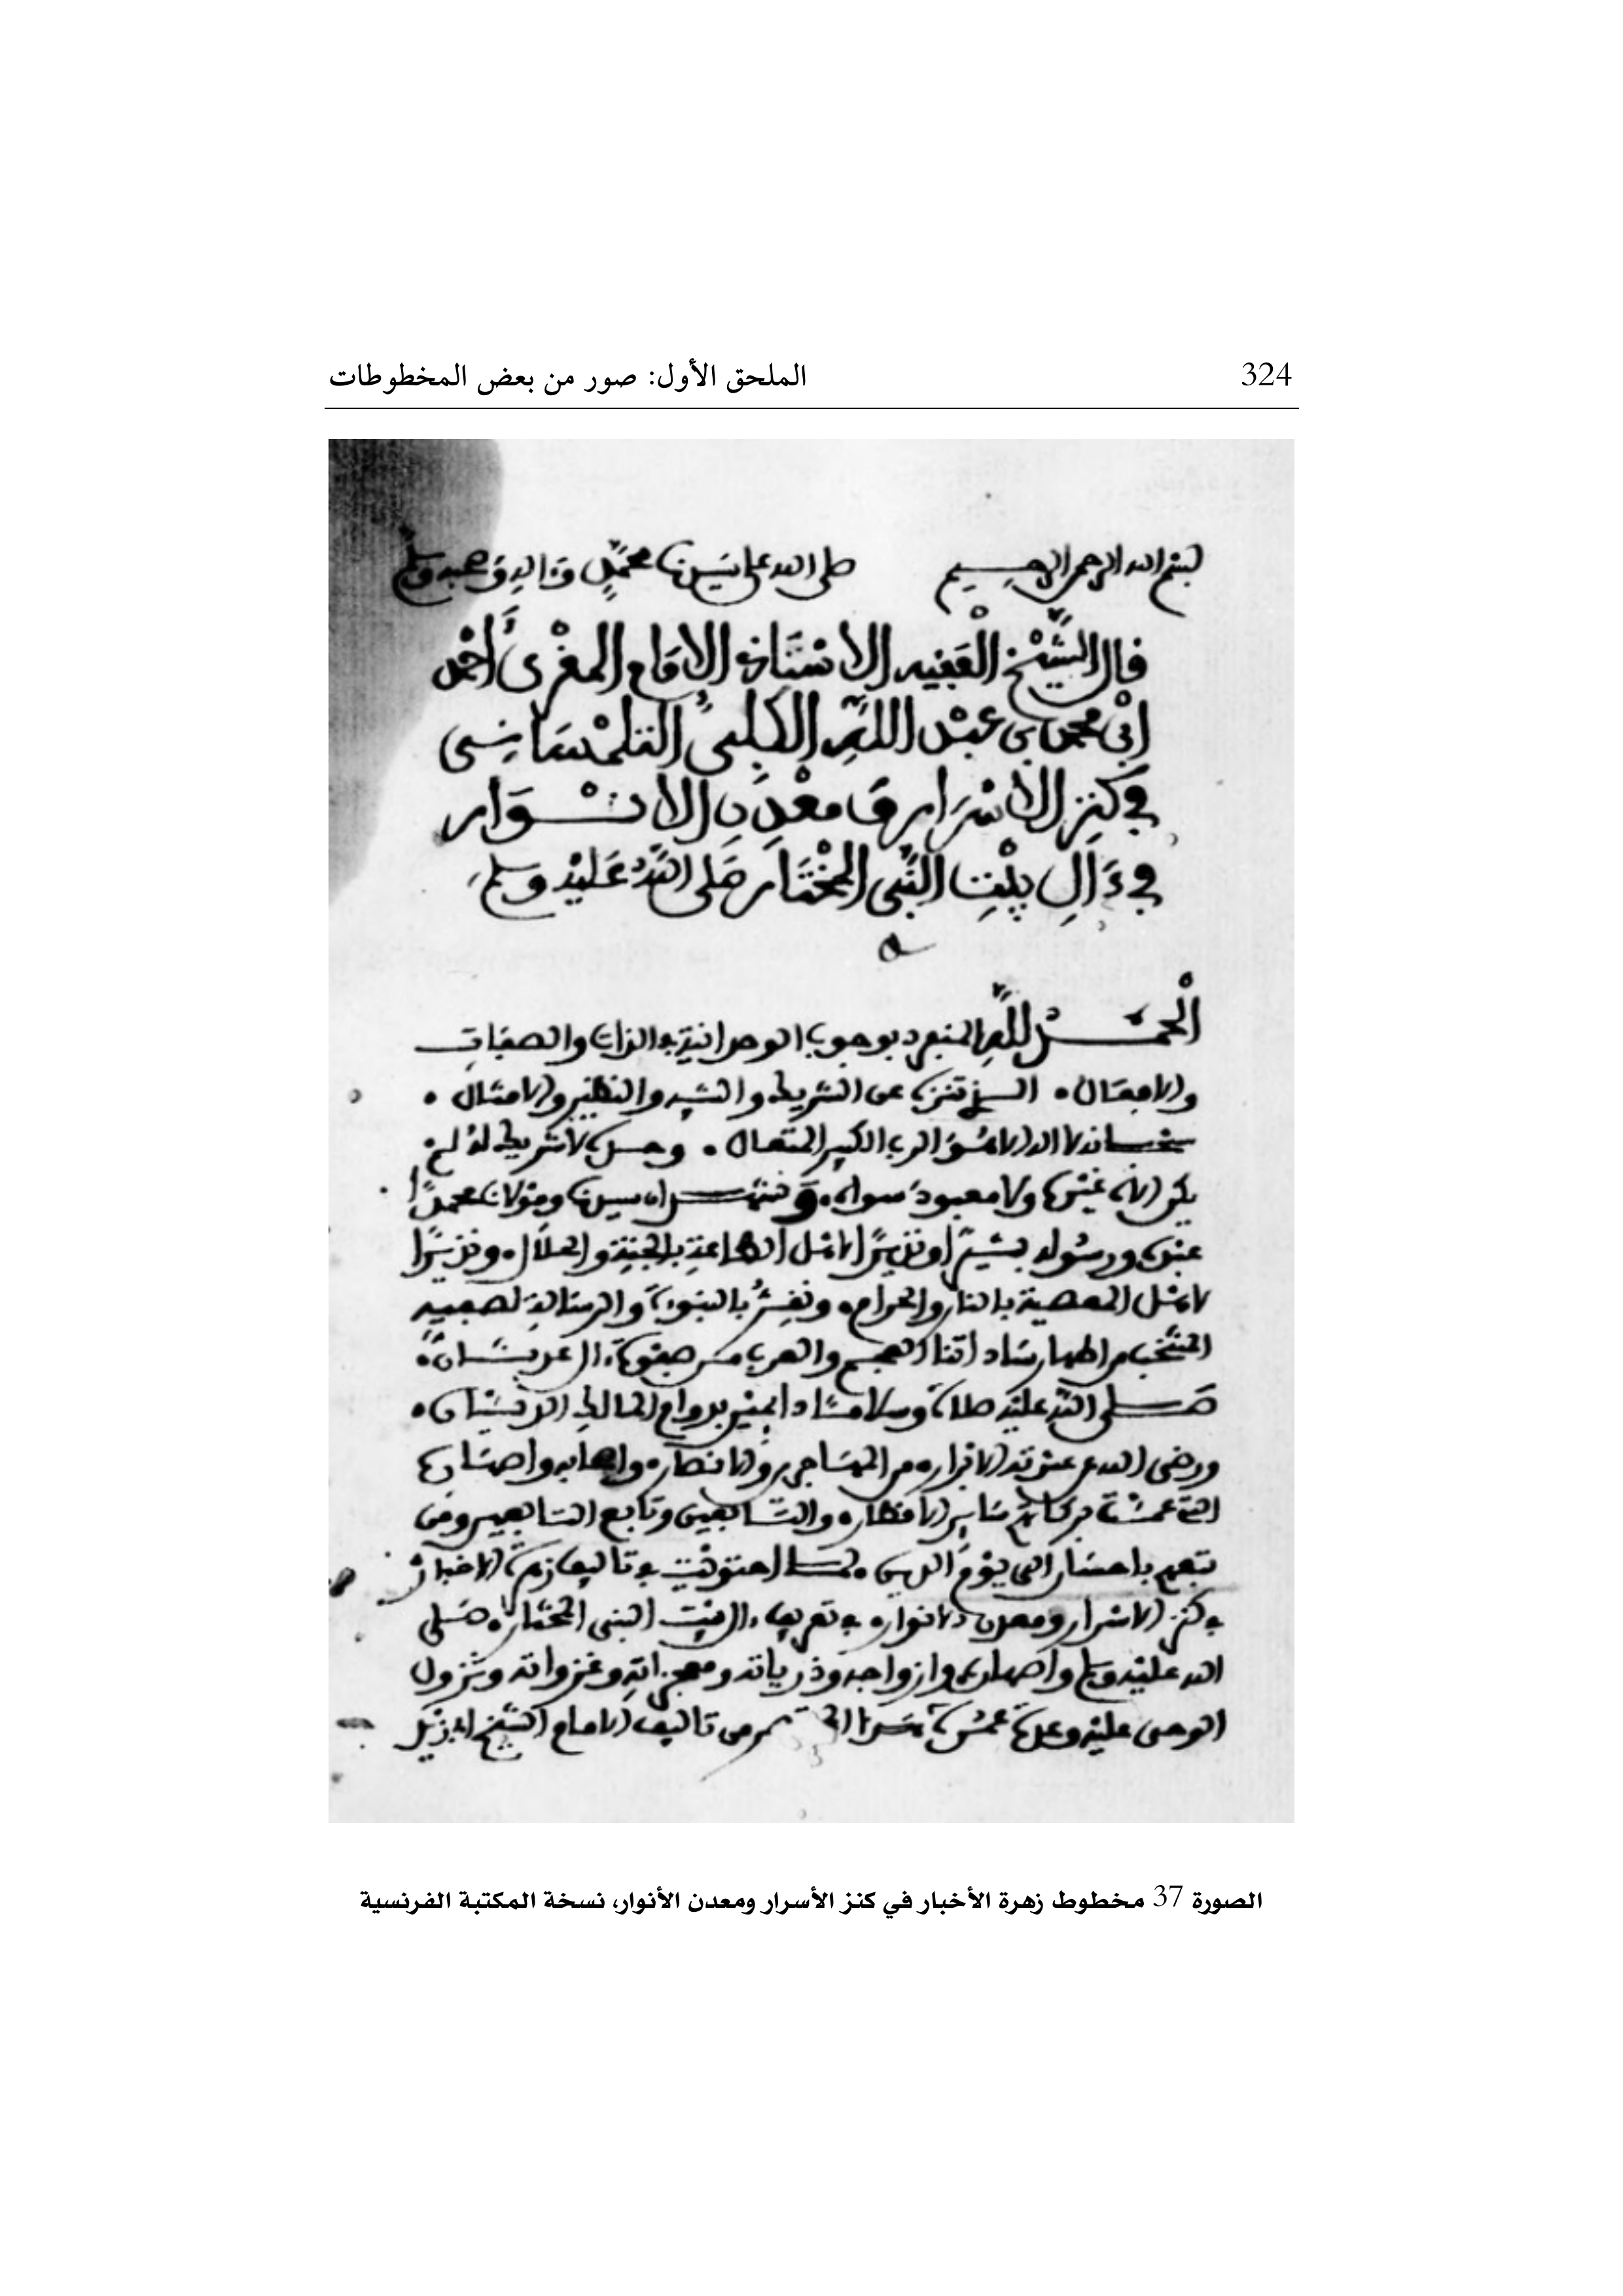 324
الملحق الأول: صور من بعض المخطوطات
بسم الله الرحمن الرحيم صلى الله على سيدنا محمد وءاله وصحبه وسلم
قال الشيخ الفقيه الاستاذ الامام المغربي أحمد
ابن محمد بن عبد الله الكلبي التلمساني
في كنز الاسرار ومعدن الانوار
في ءال بيت النبي المختار صلى الله عليه وسلم
الحمد لله المنفرد بوجوب الوحدانية في الذات والصفات
والافعال الذي تنزه عن الشريك والشبيه والنظير والامثال
سبحانه لا اله الا هو الرب الكبير المتعال وحده لا شريك له لم
يكن اله غيره ولا معبود سواه ونشهد ان سيدنا ومولانا محمدا
عبده ورسوله بشيرا ونذيرا لاهل الطاعة بالجنة والحلال ونذيرا
لاهل المعصية بالنار والحرام ونقر بالنبوة والرسالة لصفيه
المنتخب من اطهار سادتنا العجم والعرب من صفوة ءال عدنان
صلى الله عليه صلاة وسلاما دائمين بدوام المالك الديان
ورضي الله عن عترته الابرار من المهاجرين والانصار واصحابه واصهاره
الذي عمت بركاتهم سائر الاقطار والتابعين وتابع التابعين ومن
تبعهم باحسان الى يوم الدين لما احتويت في تاليف زهرة الاخبار
في كنز الاسرار ومعدن الانوار في تعريف ءال بيت النبي المختار صلى
الله عليه وسلم واصهاره وازواجه وذرياته ومعجزاته وغزواته ونزول
الوحي عليه وعدة عمره من تاليف الامام الشيخ
الصورة 37 مخطوط زهرة الأخبار في كنز الأسرار ومعدن الأنوار، نسخة المكتبة الفرنسية